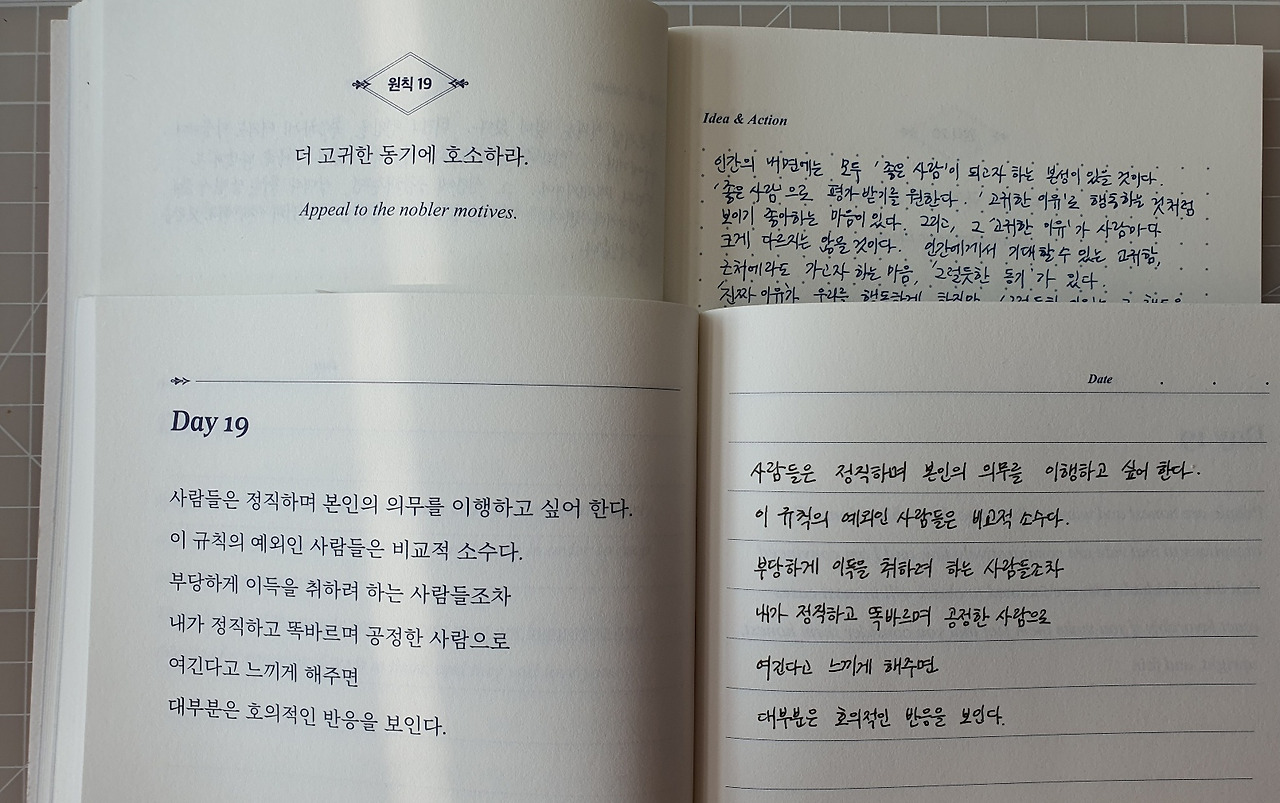 원칙 19
더 고귀한 동기에 호소하라.
Appeal to the nobler motives.
Idea & Action
인간의 내면에는 모두 '좋은 사람'이 되고자 하는 본성이 있을 것이다.
'좋은 사람'으로 평가받기를 원한다. '고귀한 이유'로 행동하는 것처럼
보이기 좋아하는 마음이 있다. 그리고, 그 '고귀한 이유'가 사람마다
크게 다르지는 않을 것이다. 인간에게서 기대할 수 있는 고귀함,
근처에라도 가고자 하는 마음, '그럴듯한 동기'가 있다.
'진짜 이유'가 우리를 행동하게 하지만, '그럴듯한
Day 19
사람들은 정직하며 본인의 의무를 이행하고 싶어 한다.
이 규칙의 예외인 사람들은 비교적 소수다.
부당하게 이득을 취하려 하는 사람들조차
내가 정직하고 똑바르며 공정한 사람으로
여긴다고 느끼게 해주면
대부분은 호의적인 반응을 보인다.
Date . . .
사람들은 정직하며 본인의 의무를 이행하고 싶어 한다.
이 규칙의 예외인 사람들은 비교적 소수다.
부당하게 이득을 취하려 하는 사람들조차
내가 정직하고 똑바르며 공정한 사람으로
여긴다고 느끼게 해주면
대부분은 호의적인 반응을 보인다.